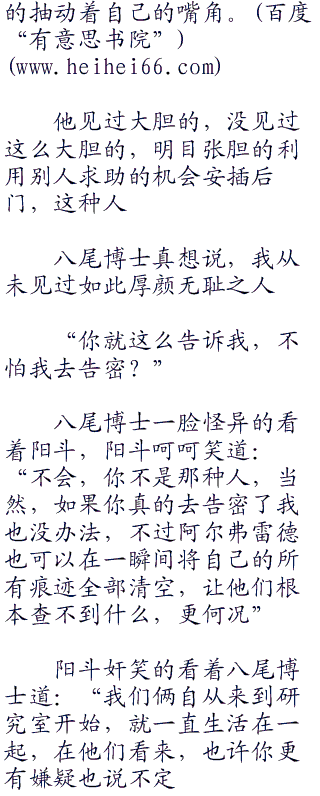 的抽动着自己的嘴角。(百度
“有意思书院”)
(www.heihei66.com)
他见过大胆的，没见过
这么大胆的，明目张胆的利
用别人求助的机会安插后
门，这种人
八尾博士真想说，我从
未见过如此厚颜无耻之人
“你就这么告诉我，不
怕我去告密？”
八尾博士一脸怪异的看
着阳斗，阳斗呵呵笑道：
“不会，你不是那种人，当
然，如果你真的去告密了我
也没办法，不过阿尔弗雷德
也可以在一瞬间将自己的所
有痕迹全部清空，让他们根
本查不到什么，更何况”
阳斗奸笑的看着八尾博
士道：“我们俩自从来到研
究室开始，就一直生活在一
起，在他们看来，也许你更
有嫌疑也说不定